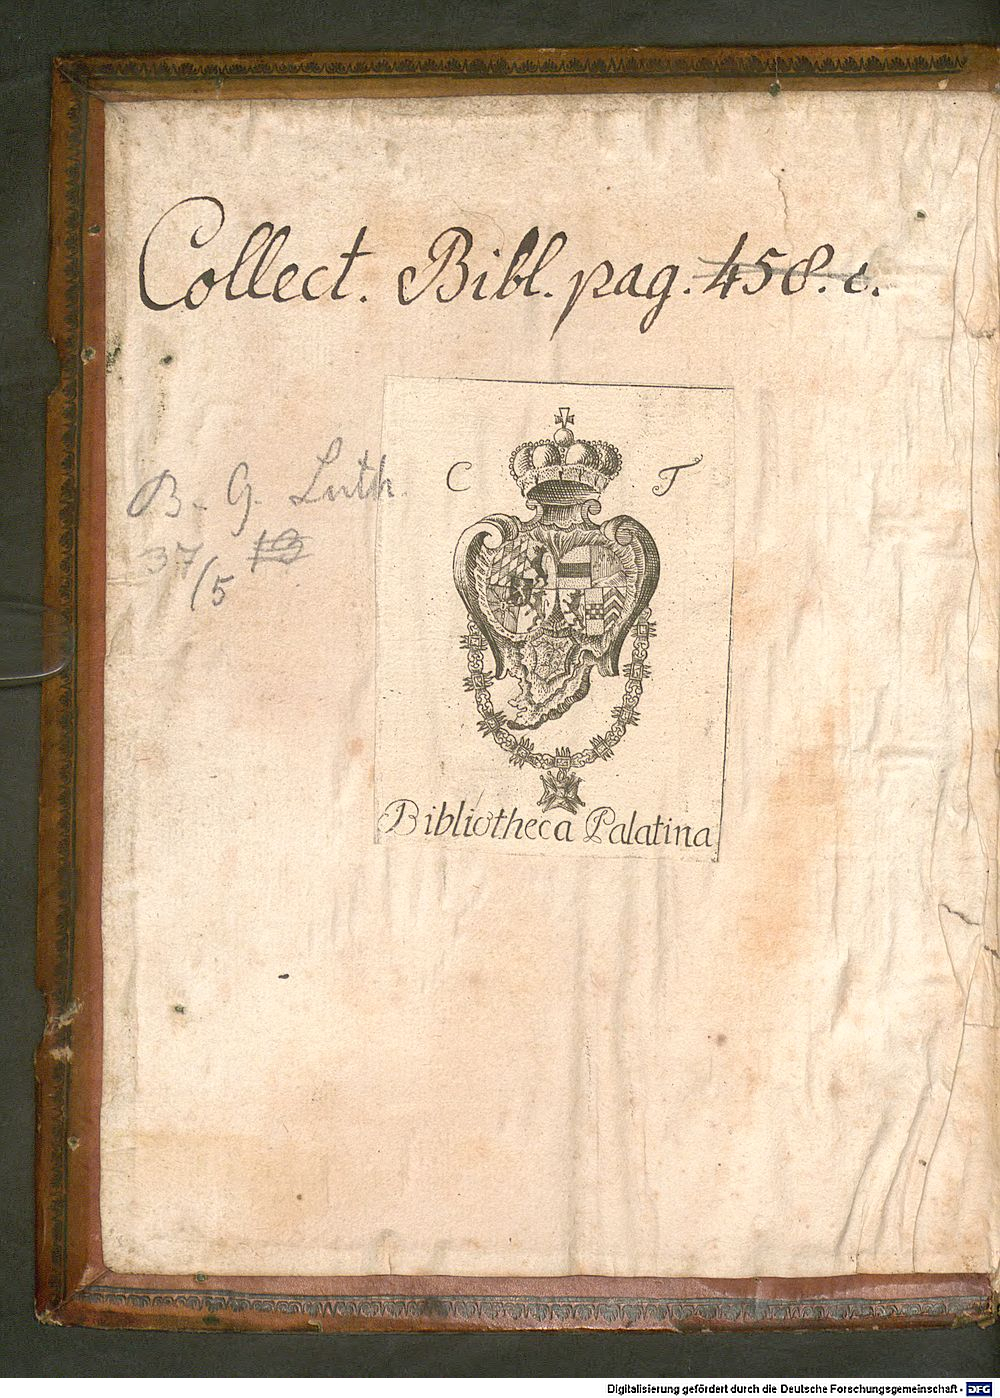 Collect. Bibl. pag. 458. c.
B. G. Luth.
37/5
C T
Bibliotheca Palatina
Digitalisierung gefördert durch die Deutsche Forschungsgemeinschaft - DFG